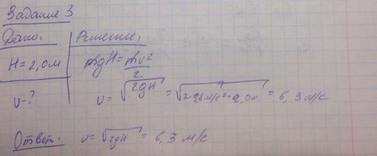 Задание 3
Дано: Решение:
H=2,0м mgH = mv²/2
v-? v = √2gH = √2·9,8м/с²·2,0м = 6,3 м/с
Ответ: v = √2gH = 6,3 м/с